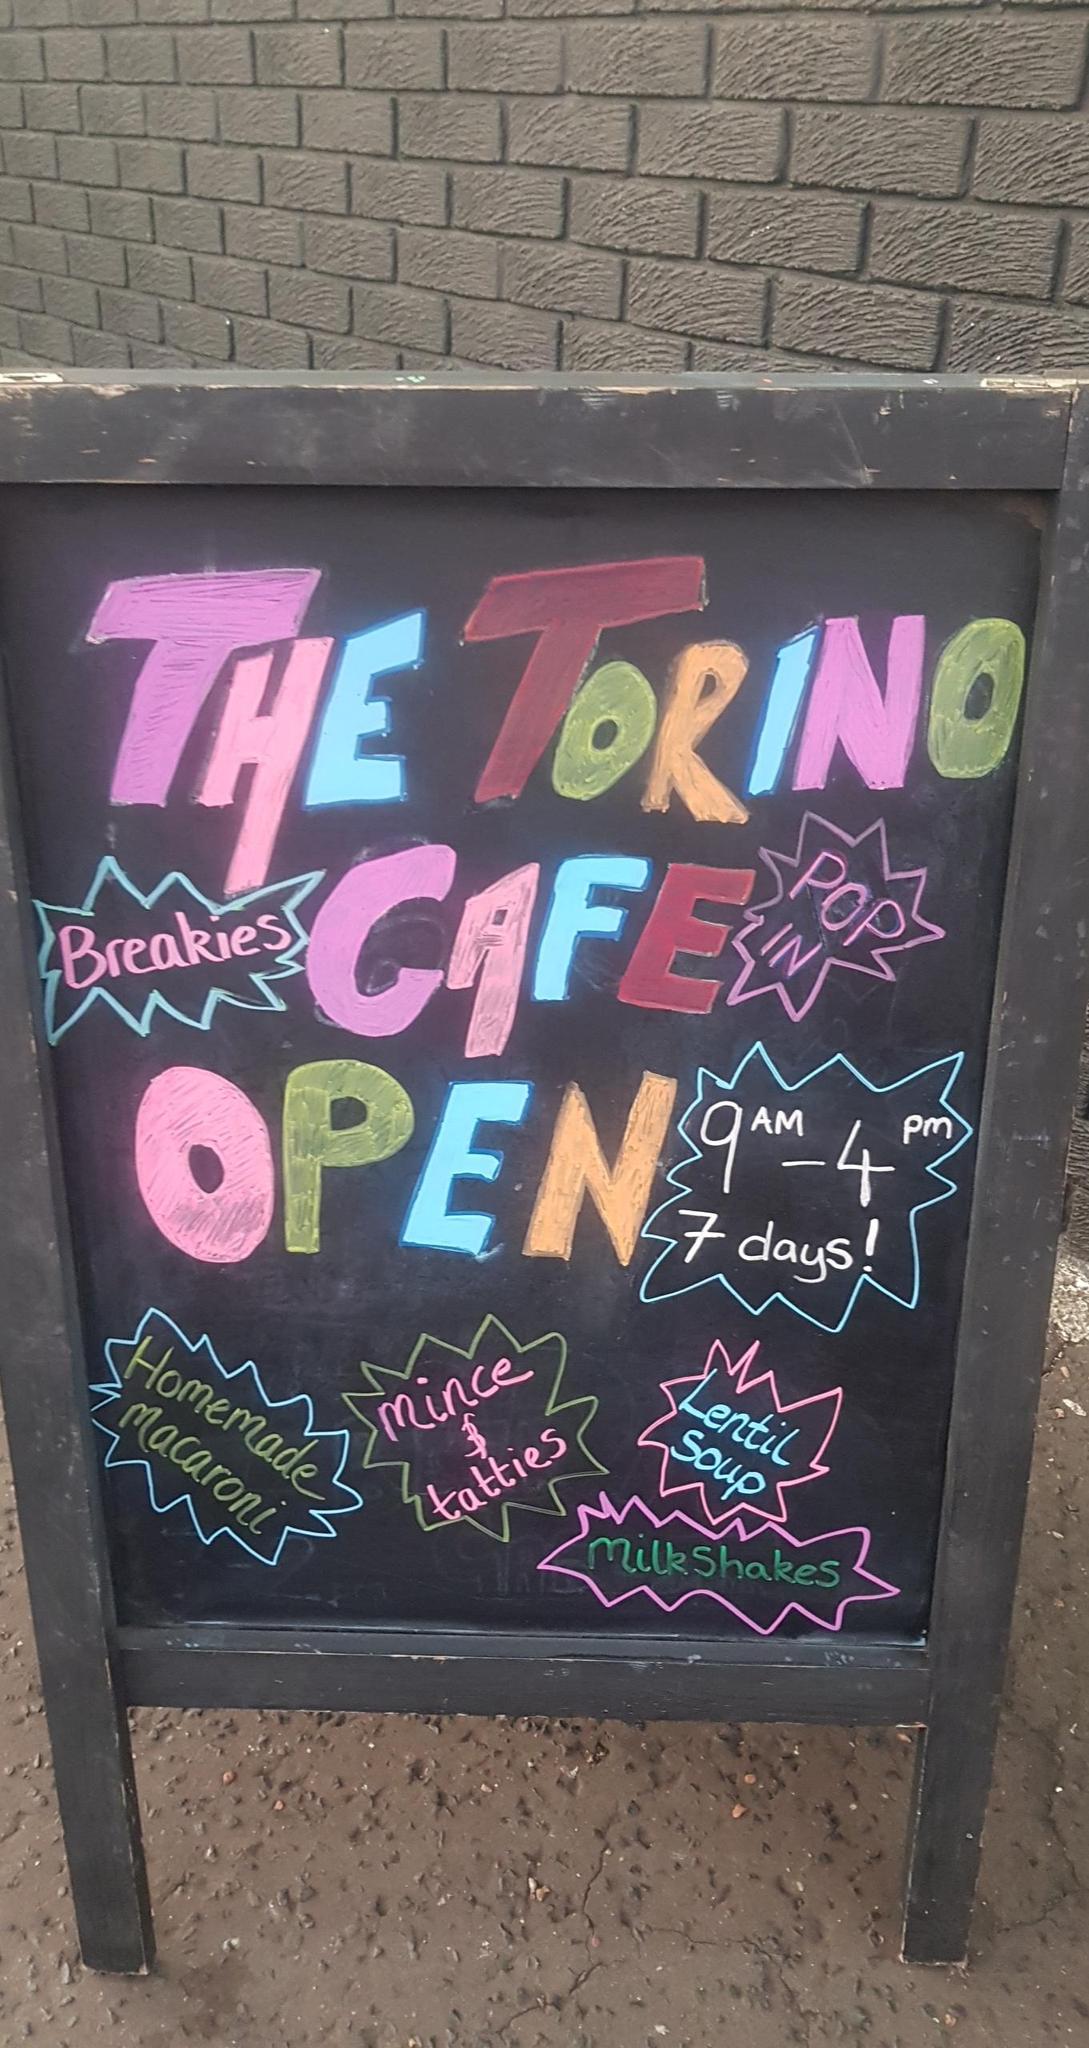 THE TORINO
Breakies
CAFE
POP
IN
OPEN
9AM - 4pm
7 days!
Homemade
macaroni
mince
&
tatties
Lentil
soup
MilkShakes